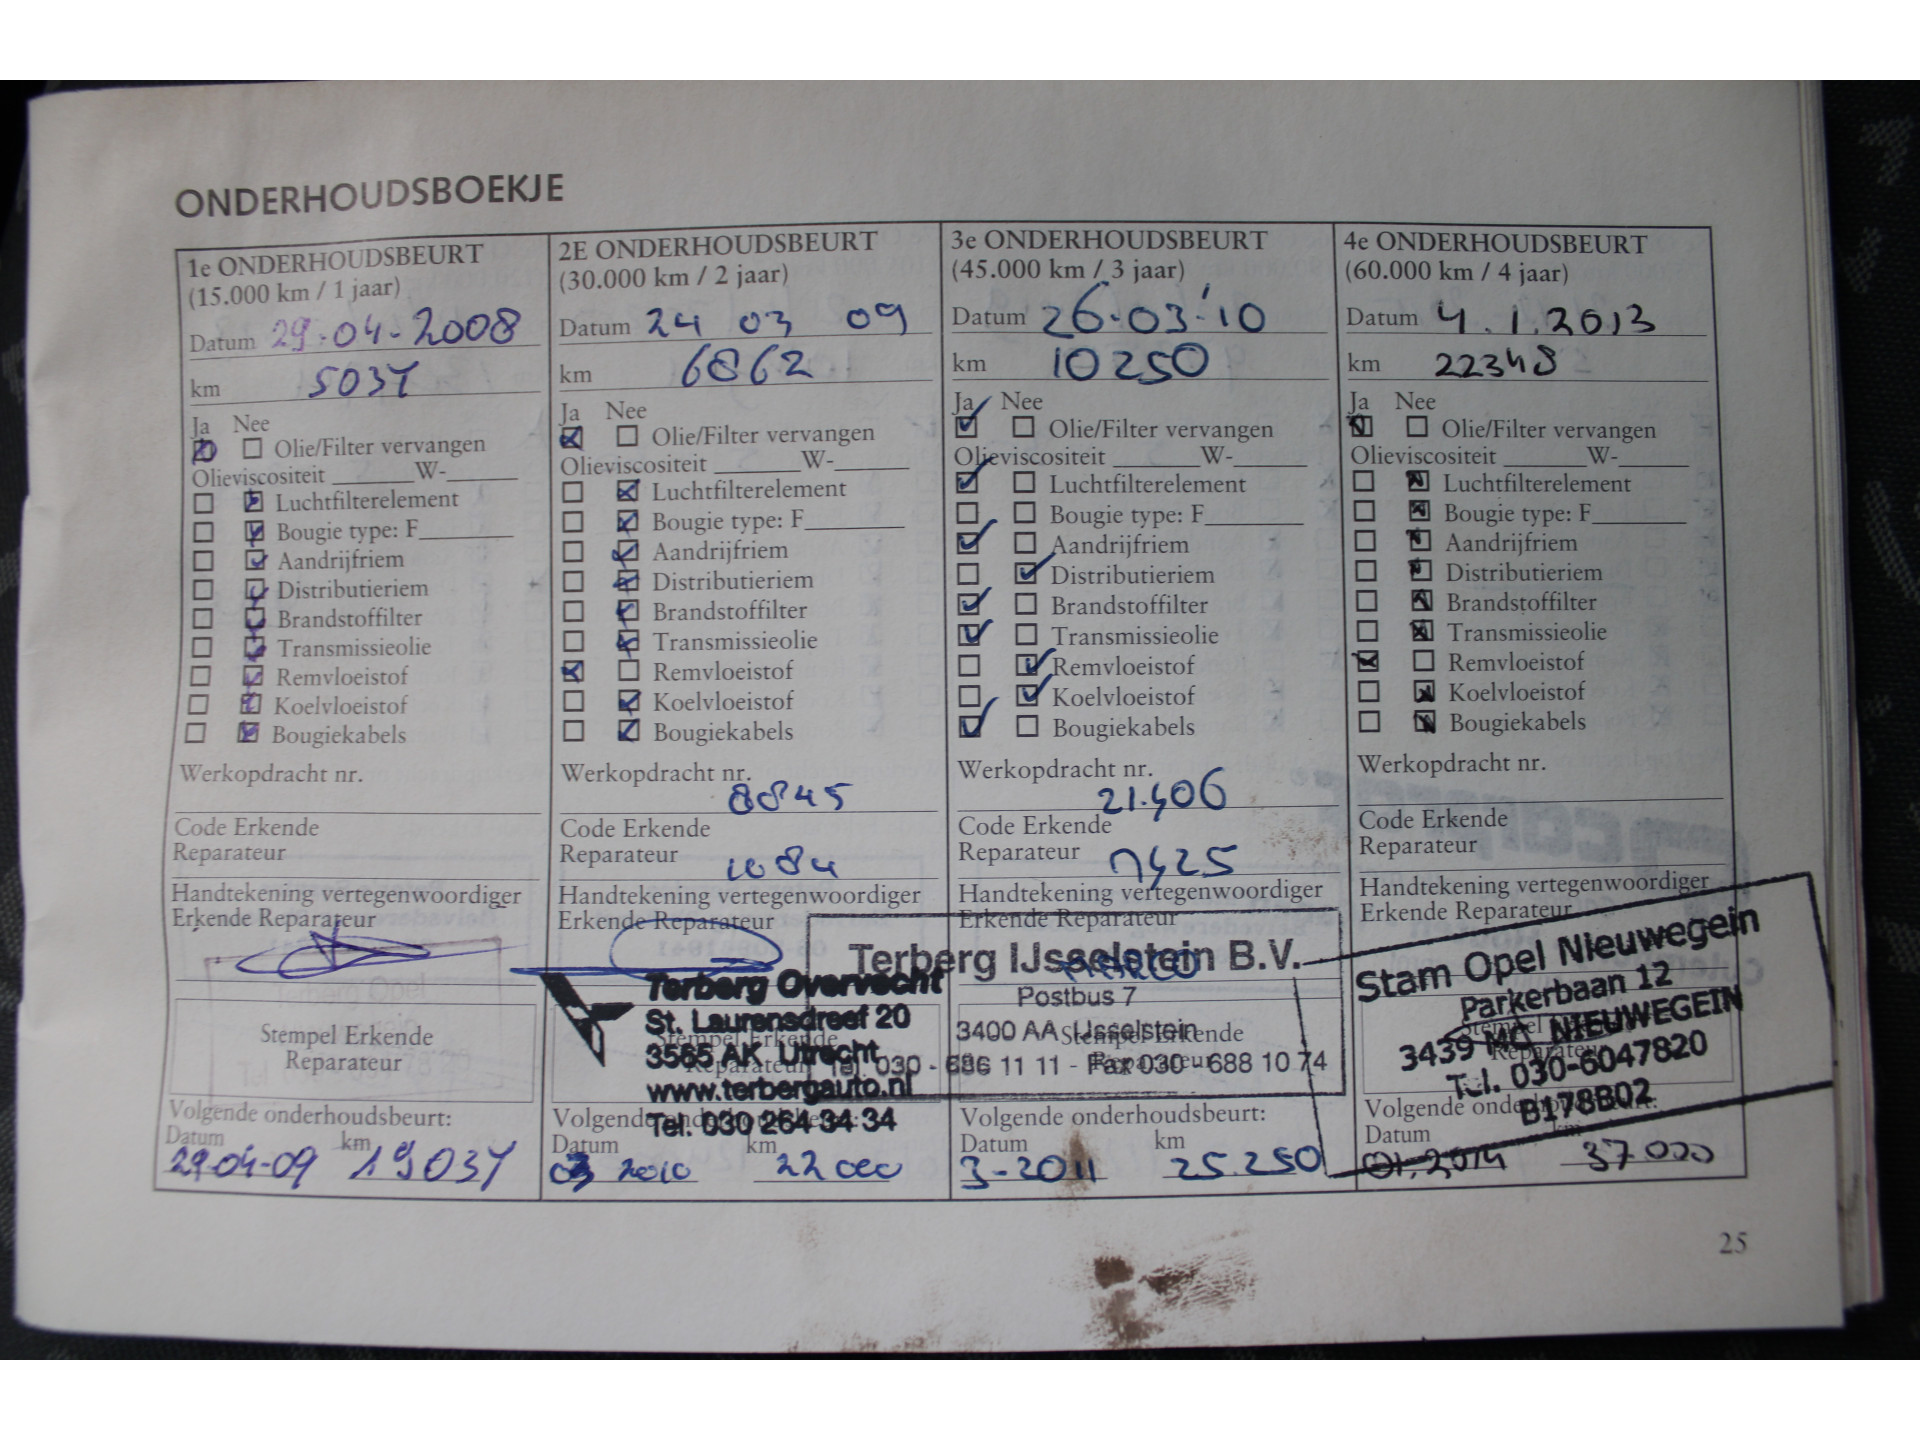 ONDERHOUDSBOEKJE
1e ONDERHOUDSBEURT
(15.000 km / 1 jaar)
Datum 29-04-2008
km
Ja Nee
Olie/Filter vervangen
Olieviscositeit ______W-______
Luchtfilterelement
Bougie type: F________
Aandrijfriem
Distributieriem
Brandstoffilter
Transmissieolie
Remvloeistof
Koelvloeistof
Bougiekabels
Werkopdracht nr.
Code Erkende
Reparateur
Handtekening vertegenwoordiger
Erkende Reparateur
Stempel Erkende
Reparateur
Volgende onderhoudsbeurt:
Datum km
29-04-09
2E ONDERHOUDSBEURT
(30.000 km / 2 jaar)
Datum 24 03 09
km 6862
Ja Nee
Olie/Filter vervangen
Olieviscositeit ______W-______
Luchtfilterelement
Bougie type: F________
Aandrijfriem
Distributieriem
Brandstoffilter
Transmissieolie
Remvloeistof
Koelvloeistof
Bougiekabels
Werkopdracht nr.
8845
Code Erkende
Reparateur
Handtekening vertegenwoordiger
Erkende Reparateur
Terberg Overvecht
St. Laurensdreef 20
3565 AK Utrecht
www.terbergauto.nl
Tel. 030 264 34 34
Stempel Erkende
Reparateur
Volgende onderhoudsbeurt:
Datum km
03 2010 22 000
3e ONDERHOUDSBEURT
(45.000 km / 3 jaar)
Datum 26-03-'10
km 10250
Ja Nee
Olie/Filter vervangen
Olieviscositeit ______W-______
Luchtfilterelement
Bougie type: F________
Aandrijfriem
Distributieriem
Brandstoffilter
Transmissieolie
Remvloeistof
Koelvloeistof
Bougiekabels
Werkopdracht nr.
21.406
Code Erkende
Reparateur
Handtekening vertegenwoordiger
Erkende Reparateur
Terberg IJsselstein B.V.
Postbus 7
3400 AA IJsselstein
Tel. 030 - 686 11 11 - Fax 030 - 688 10 74
Stempel Erkende
Reparateur
Volgende onderhoudsbeurt:
Datum km
3-2011 25.250
4e ONDERHOUDSBEURT
(60.000 km / 4 jaar)
Datum 4.1.2013
km 22348
Ja Nee
Olie/Filter vervangen
Olieviscositeit ______W-______
Luchtfilterelement
Bougie type: F________
Aandrijfriem
Distributieriem
Brandstoffilter
Transmissieolie
Remvloeistof
Koelvloeistof
Bougiekabels
Werkopdracht nr.
Code Erkende
Reparateur
Handtekening vertegenwoordiger
Erkende Reparateur
Stam Opel Nieuwegein
Parkerbaan 12
3439 MC NIEUWEGEIN
Tel. 030-6047820
B178B02
Stempel
Reparateur
Volgende onderhoudsbeurt:
Datum km
01.2014 37000
25